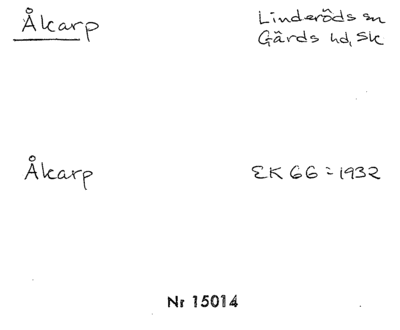 Åkarp
Linderöds sn
Gärds hd, Sk
Åkarp
EK 66 = 1932
Nr 15014